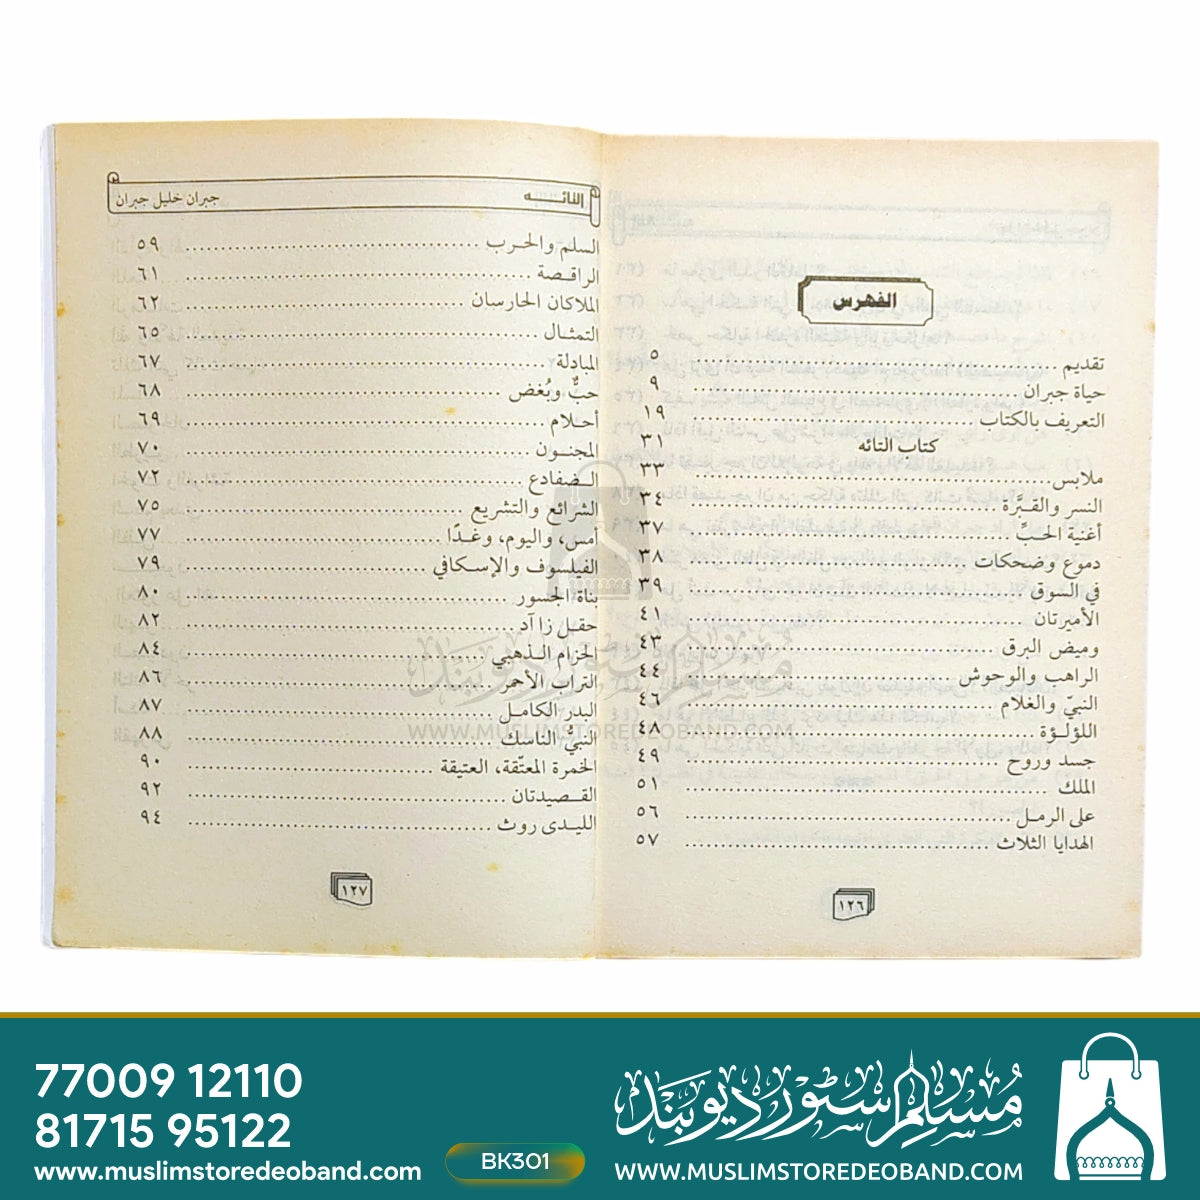 الفهرس
تقديم ........ ٥
حياة جبران ........ ٩
التعريف بالكتاب ........ ١٩
كتاب التائه ٣١
ملابس ........ ٣٣
النسر والقبّرة ........ ٣٤
أغنية الحبِّ ........ ٣٧
دموع وضحكات ........ ٣٨
في السوق ........ ٣٩
الأميرتان ........ ٤١
وميض البرق ........ ٤٣
الراهب والوحوش ........ ٤٤
النبيّ والغلام ........ ٤٦
اللؤلؤة ........ ٤٨
جسد وروح ........ ٤٩
الملك ........ ٥١
على الرمل ........ ٥٦
الهدايا الثلاث ........ ٥٧
١٢٦
التائه
جبران خليل جبران
السلم والحرب ........ ٥٩
الراقصة ........ ٦١
الملاكان الحارسان ........ ٦٢
التمثال ........ ٦٥
المبادلة ........ ٦٧
حبٌّ وبُغض ........ ٦٨
أحلام ........ ٦٩
المجنون ........ ٧٠
الضفادع ........ ٧٢
الشرائع والتشريع ........ ٧٥
أمس، واليوم، وغدًا ........ ٧٧
الفيلسوف والإسكافي ........ ٧٩
بناة الجسور ........ ٨٠
حقل زا آد ........ ٨٢
الحزام الذهبي ........ ٨٤
التراب الأحمر ........ ٨٦
البدر الكامل ........ ٨٧
النبيّ الناسك ........ ٨٨
الخمرة المعتّقة، العتيقة ........ ٩٠
القصيدتان ........ ٩٢
الليدى روث ........ ٩٤
١٢٧
مسلم سٹور دیوبند
WWW.MUSLIMSTOREDEOBAND.COM
77009 12110
81715 95122
www.muslimstoredeoband.com
BK301
مسلم سٹور دیوبند
WWW.MUSLIMSTOREDEOBAND.COM